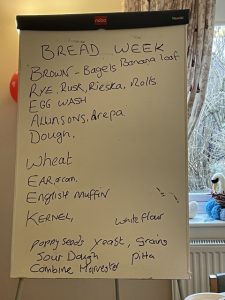 nobo
BREAD WEEK
BROWN - Bagels Banana loaf
RYE, Rusk, Rieska, Rolls
EGG WASH
Allinsons, Arepa
Dough,
Wheat
EAR,
English Muffin
KERNEL, White flour
Poppy seeds yeast, Grains
Sour Dough Pitta
Combine Harvester